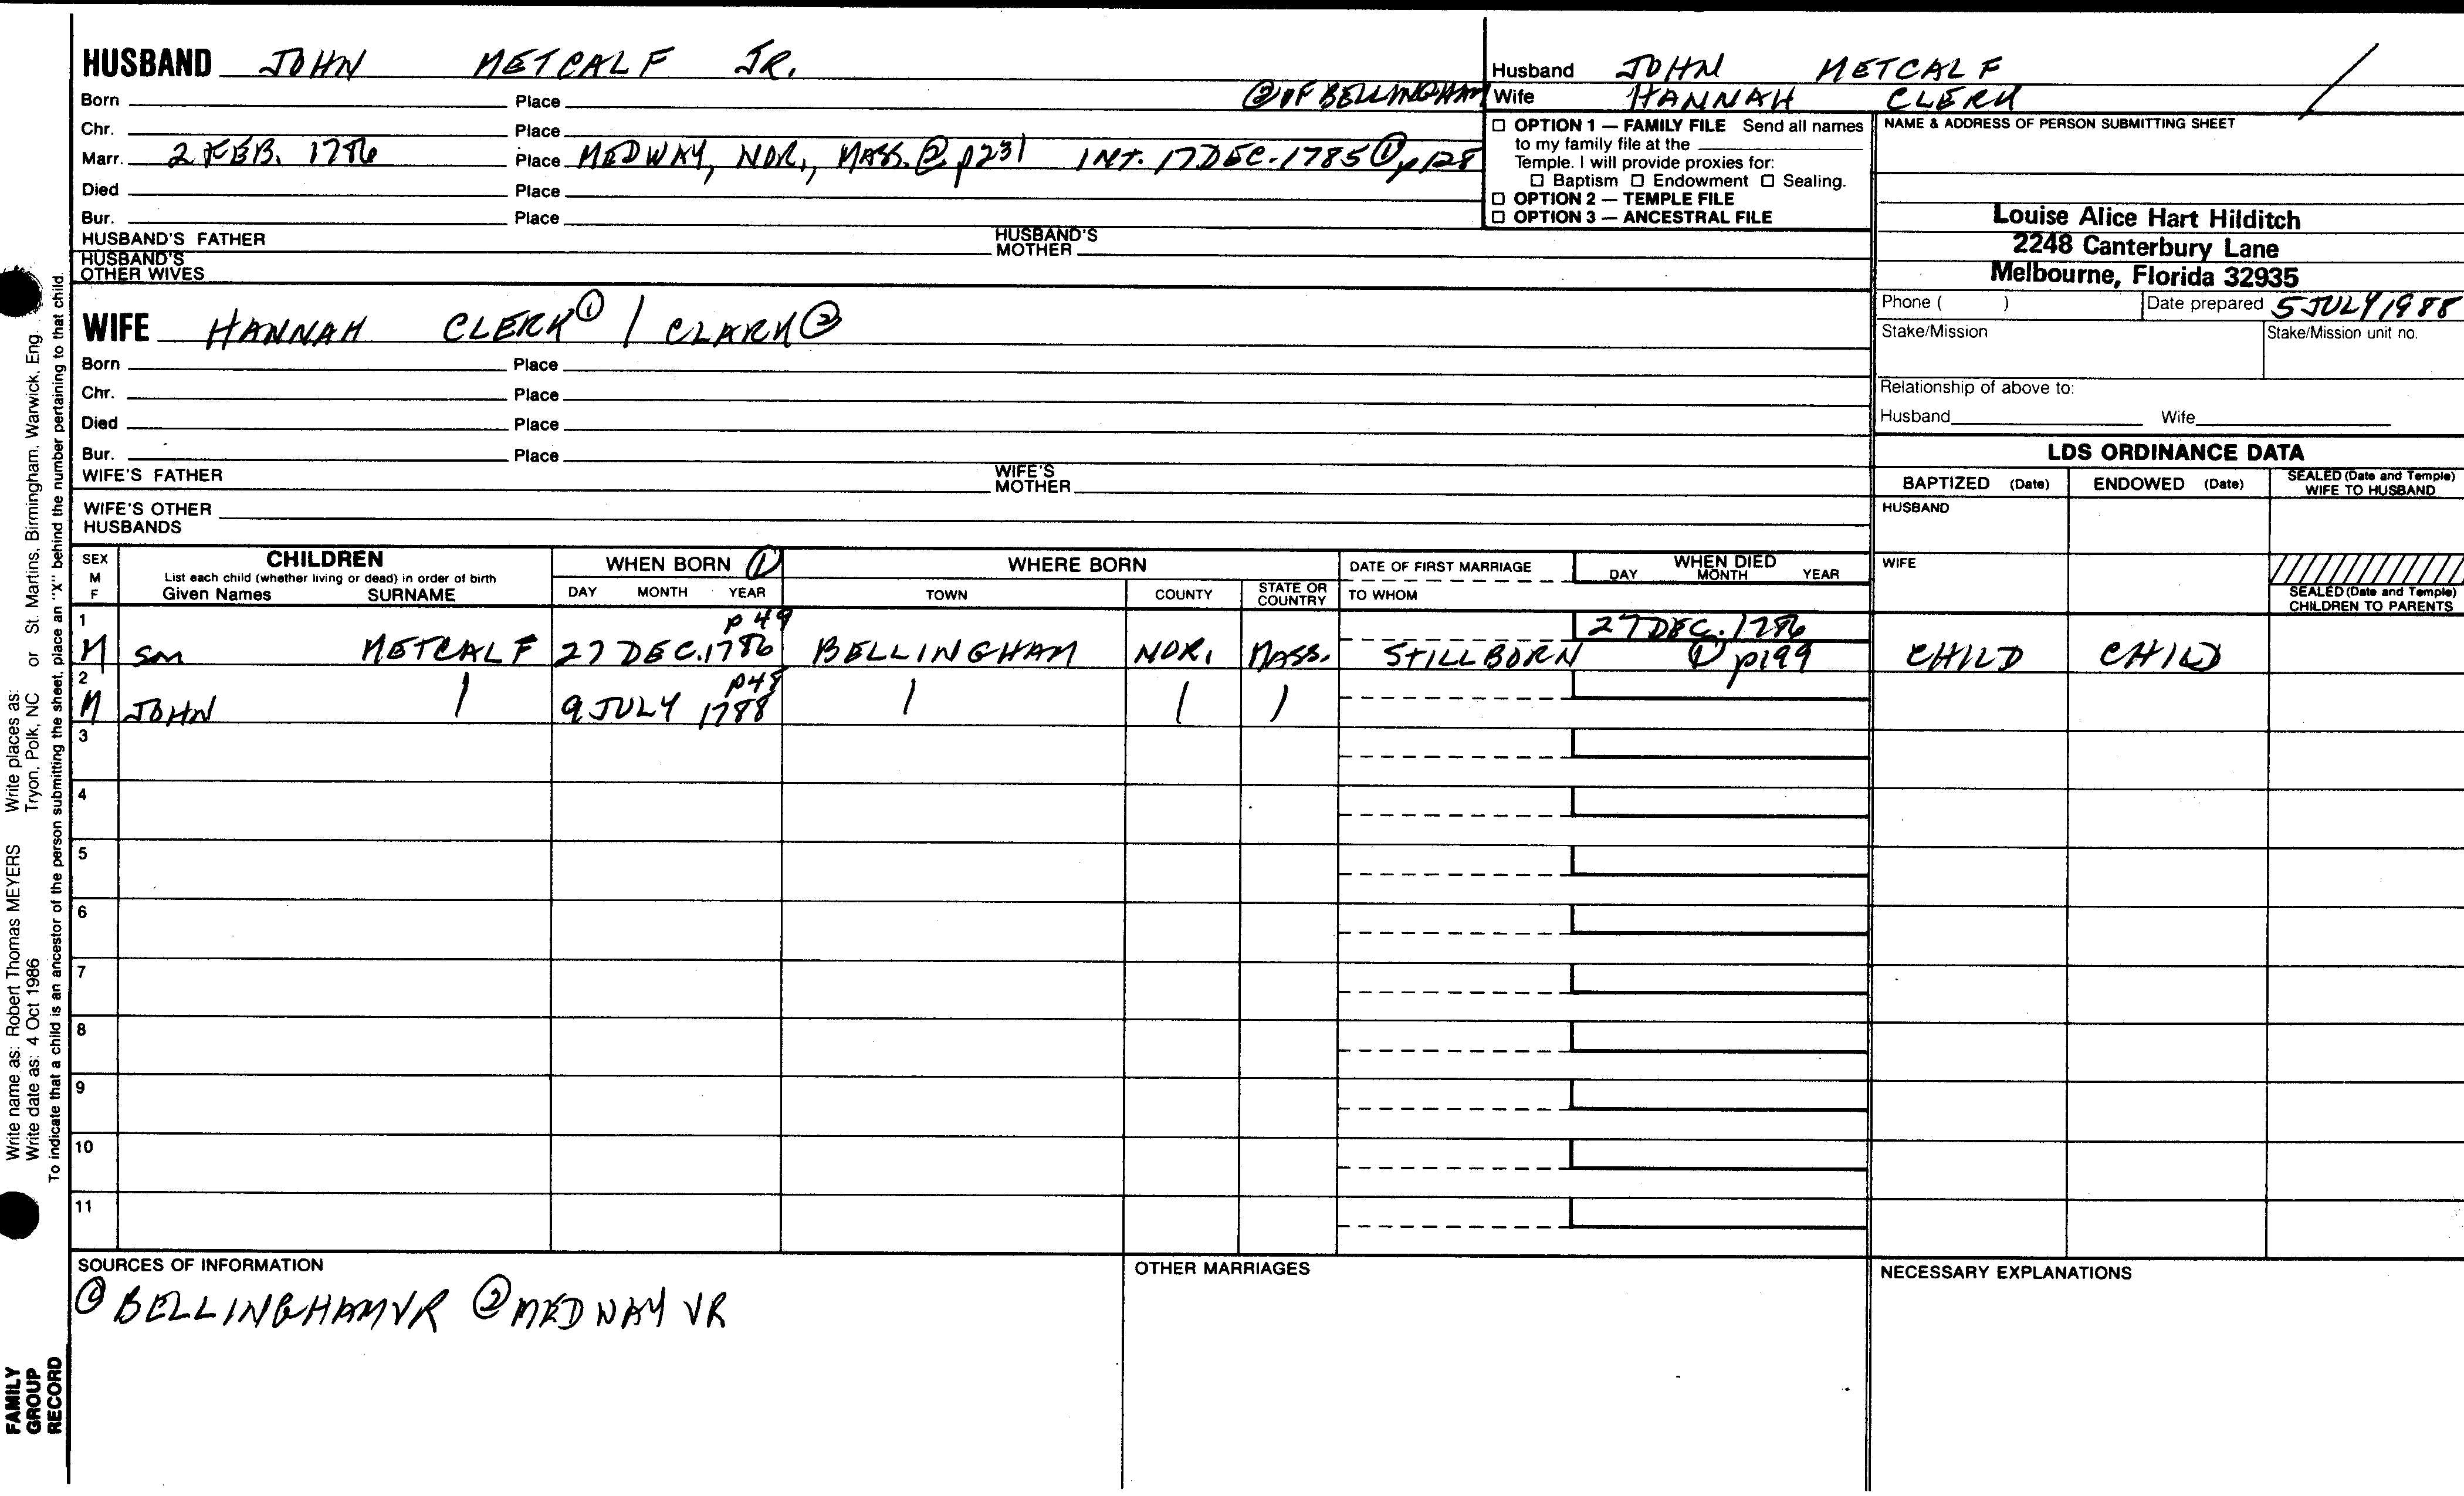 HUSBAND JOHN METCALF JR.
Born Place ② OF BELLINGHAM
Chr. Place
Marr. 2 FEB. 1786 Place MEDWAY, NOR., MASS. ② p231 INT. 17 DEC. 1785 ① p128
Died Place
Bur. Place
HUSBAND'S FATHER HUSBAND'S MOTHER
HUSBAND'S OTHER WIVES
Husband JOHN METCALF
Wife HANNAH CLERK
☐ OPTION 1 — FAMILY FILE Send all names
to my family file at the
Temple. I will provide proxies for:
☐ Baptism ☐ Endowment ☐ Sealing.
☐ OPTION 2 — TEMPLE FILE
☐ OPTION 3 — ANCESTRAL FILE
NAME & ADDRESS OF PERSON SUBMITTING SHEET
Louise Alice Hart Hilditch
2248 Canterbury Lane
Melbourne, Florida 32935
Phone ( ) Date prepared 5 JULY 1988
Stake/Mission Stake/Mission unit no.
Relationship of above to:
Husband Wife
WIFE HANNAH CLERK ① / CLARK ②
Born Place
Chr. Place
Died Place
Bur. Place
WIFE'S FATHER WIFE'S MOTHER
WIFE'S OTHER HUSBANDS
LDS ORDINANCE DATA
BAPTIZED (Date) ENDOWED (Date) SEALED (Date and Temple) WIFE TO HUSBAND
HUSBAND
WIFE
SEALED (Date and Temple) CHILDREN TO PARENTS
SEX M F
CHILDREN
List each child (whether living or dead) in order of birth
Given Names SURNAME
WHEN BORN ①
DAY MONTH YEAR
WHERE BORN
TOWN COUNTY STATE OR COUNTRY
DATE OF FIRST MARRIAGE
TO WHOM
WHEN DIED
DAY MONTH YEAR
1 p 49 27 DEC. 1786
M son METCALF 27 DEC. 1786 BELLINGHAM NOR. MASS. STILLBORN ① p199 CHILD CHILD
2 p48
M JOHN / 9 JULY 1788 / / /
3
4
5
6
7
8
9
10
11
SOURCES OF INFORMATION
① BELLINGHAM VR ② MEDWAY VR
OTHER MARRIAGES
NECESSARY EXPLANATIONS
Write name as: Robert Thomas MEYERS Write places as: or St. Martins, Birmingham, Warwick, Eng.
Write date as: 4 Oct 1986 Tryon, Polk, NC
To indicate that a child is an ancestor of the person submitting the sheet, place an "X" behind the number pertaining to that child.
FAMILY
GROUP
RECORD